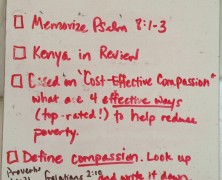 Memorize Psalm 8:1-3
Kenya in Review
Based on "Cost-Effective Compassion"
what are 4 effective ways
(top-rated!) to help reduce
poverty.
Define compassion. Look up
Proverbs Galatians 2:10
and write it down.